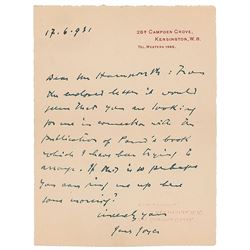 28B CAMPDEN GROVE,
KENSINGTON, W.8.
TEL. WESTERN
17.6.931
Dear Mr Harmsworth: From
the enclosed letter it would
seem that you are looking
for me in connection with the
publication of Pound's book
which I have been trying to
arrange. If that is so perhaps
you can ring me up here
some morning?
sincerely yours
James Joyce